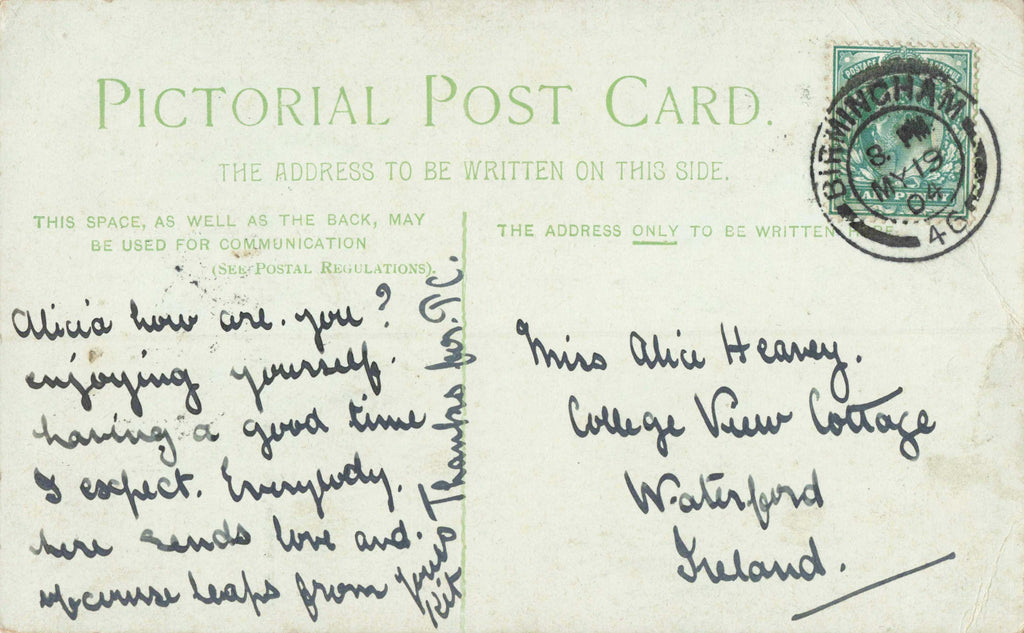 PICTORIAL POST CARD.
THE ADDRESS TO BE WRITTEN ON THIS SIDE.
THIS SPACE, AS WELL AS THE BACK, MAY
BE USED FOR COMMUNICATION
(SEE POSTAL REGULATIONS).
Alicia how are. you?
enjoying yourself.
having a good time
I expect. Everybody.
here sends love and.
of course leaps from
yours
Kit
Thanks for. P.C.
THE ADDRESS ONLY TO BE WRITTEN HERE
POSTAGE REVENUE
BIRMINGHAM
8. PM
MY 19
04
Miss Alice Heavey.
College View Cottage
Waterford
Ireland.